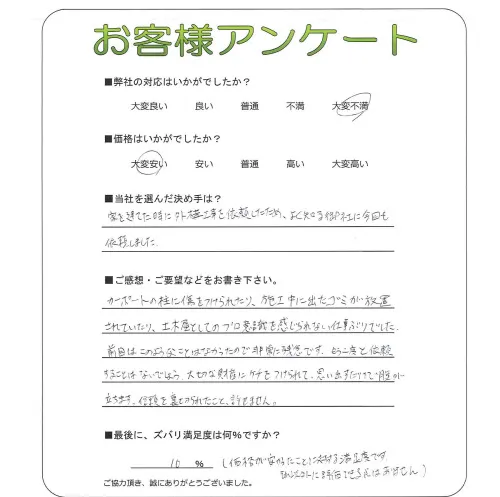 お客様アンケート
■弊社の対応はいかがでしたか?
大変良い 良い 普通 不満 大変不満
■価格はいかがでしたか?
大変安い 安い 普通 高い 大変高い
■当社を選んだ決め手は?
家を建てた時に外構工事を依頼したため、よく知る御社に今回も
依頼しました。
■ご感想・ご要望などをお書き下さい。
カーポートの柱に傷をつけられたり、施工中に出たゴミが放置
されていたり、土木屋としてのプロ意識を感じられない仕事ぶりでした。
前回はこのようなことはなかったので非常に残念です。もう二度と依頼
することはないでしょう。大切な財産にケチをつけられて、思い出すだけで腹が
立ちます。信頼を裏切られたこと、許せません。
■最後に、ズバリ満足度は何%ですか?
10 % (価格が安かったことに対する満足度です
に評価できる点はありません)
ご協力頂き、誠にありがとうございました。